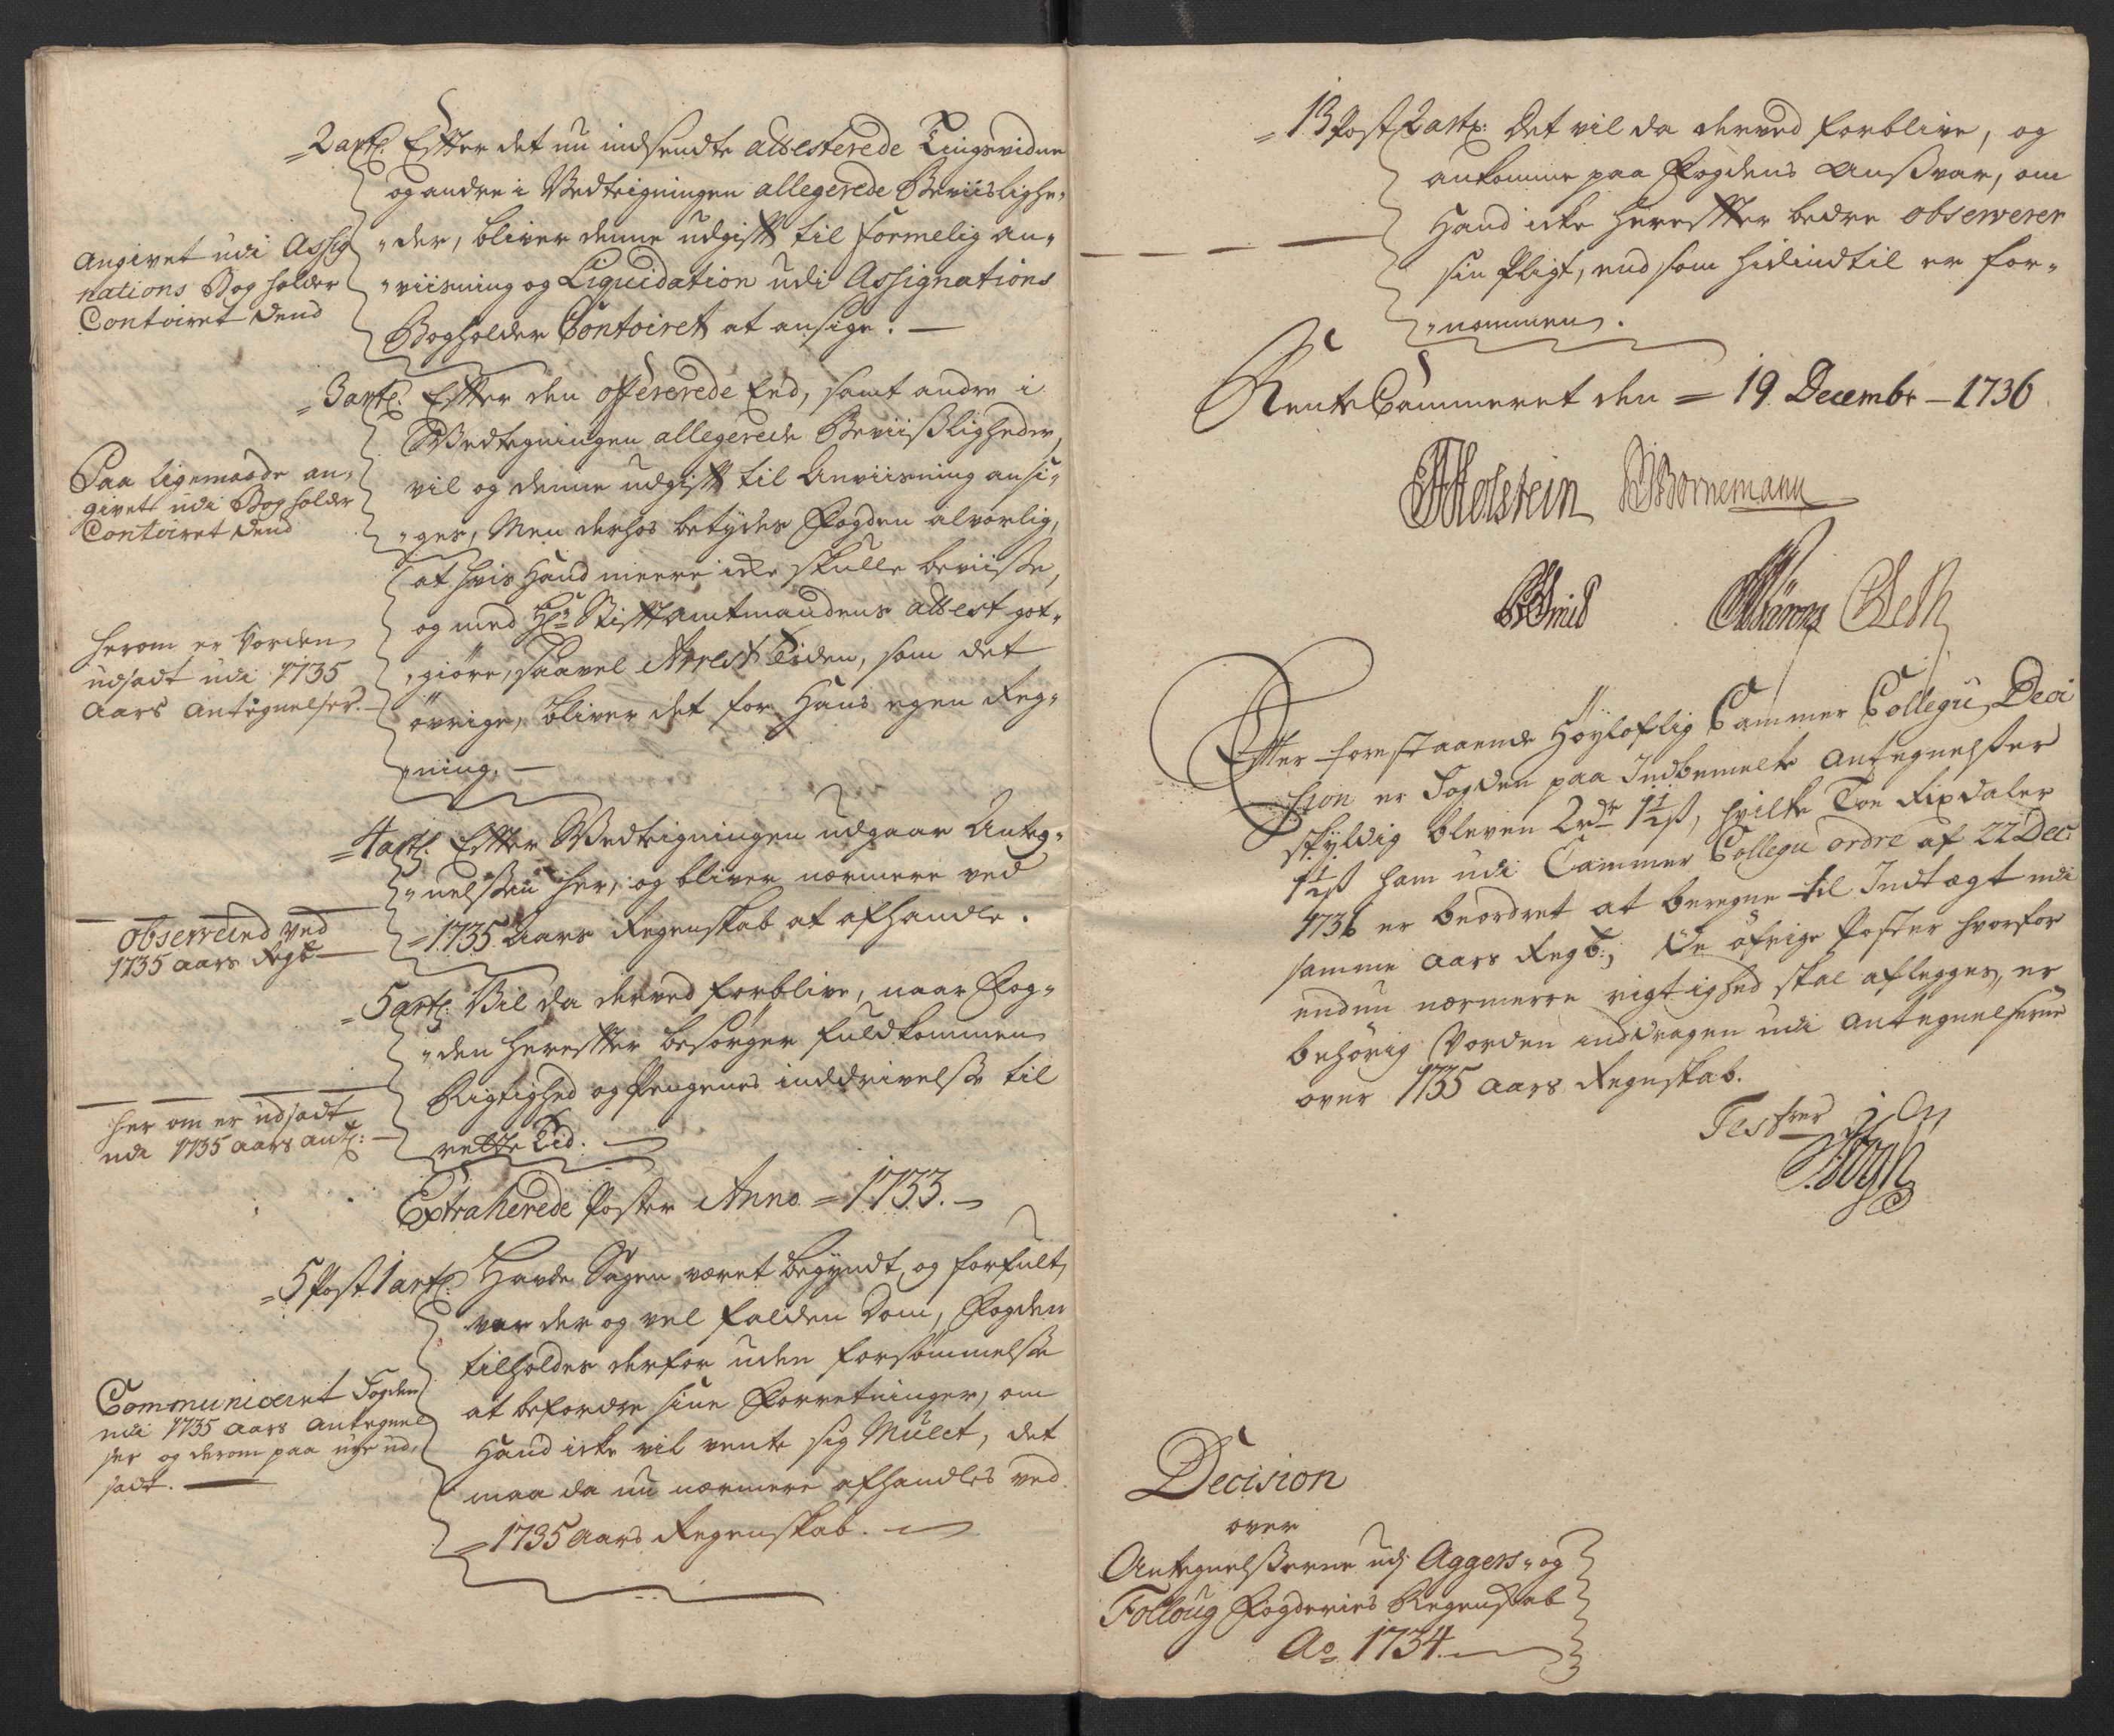 2 artl. Efter det nu indsendte attesterede Tingsvidne
og andre i Vedtegningen allegerede Beviislighe-
der, bliver denne udgift til formelig An-
viisning og Liquidation udi Assignations
Bogholder Contoiret at ansige.
angivet udi Assig
nations Bogholder
Contoiret dend
3 artl. Efter den offererede Eed, samt andre i
Vedtegningen allegerede Beviisligheder,
vil og denne udgift til Anviisning ansi-
ges, Men derhos betydes Fogden alvorlig,
at hvis Hand meere icke skulle beviisse,
og med Hr. Stiftamtmandens attest got-
giøre, saavel Arrest Tiden, som det
øvrige, bliver det for Hans egen Reg-
ning.
Paa ligemaade an-
givet udi Bogholder
Contoiret dend
herom er vorden
udsadt udi 1735
Aars Antegnelser.
4 artl. Efter Vedtegningen udgaar Anteg-
nelssen her, og bliver nærmere ved
1735 Aars Regenskab at afhandle.
observered ved
1735 aars Regb
5 artl. Vil da derved forblive, naar Fog-
den herefter besørger fuldkommen
Rigtighed og Pengenes inddrivelse til
rette Tid.
her om er udsadt
udi 1735 aars ant:
Extraherede Poster Anno 1733.
5 Post 1 artl. Havde Sagen været begyndt og forfult,
var der og vel falden Dom, Fogden
tilholdes derfor uden forsømmelse
at befordre sine Forretninger, om
Hand icke vil vente sig Mulct, det
maa da nu nærmere afhandles ved
1735 Aars Regenskab.
Communiceret Fogden
udi 1735 Aars Antegnel
ser og derom paa nye ud-
sadt.
13 Post 2 artl: Det vil da derved forblive, og
ankomme paa Fogdens Ansvar, om
Hand icke herefter bedre observerer
sin Pligt, end som hidindtil er for-
nommen.
RenteCammeret den 19 Decembr 1736
Holstein Bornemann
Efter forestaaende Høyloflig Cammer Collegii Deci
sion er Fogden paa Indbemelte Antegnelser
skyldig bleven 2 rdr 1½ ß, hvilke Toe Rixdaler
1½ ß ham udi Cammer Collegii ordre af 22 Dec
1736 er beordret at beregne til Indtægt udi
samme Aars Regb:; De øfrige Poster hvorfor
endnu nærmere rigtighed skal aflegges, er
behørig vorden inddragen udi Antegnelserne
over 1735 Aars Regnskab.
Decision
over
Antegnelsserne udj Aggers- og
Folloug Fogderies Regenskab
Ao 1734.